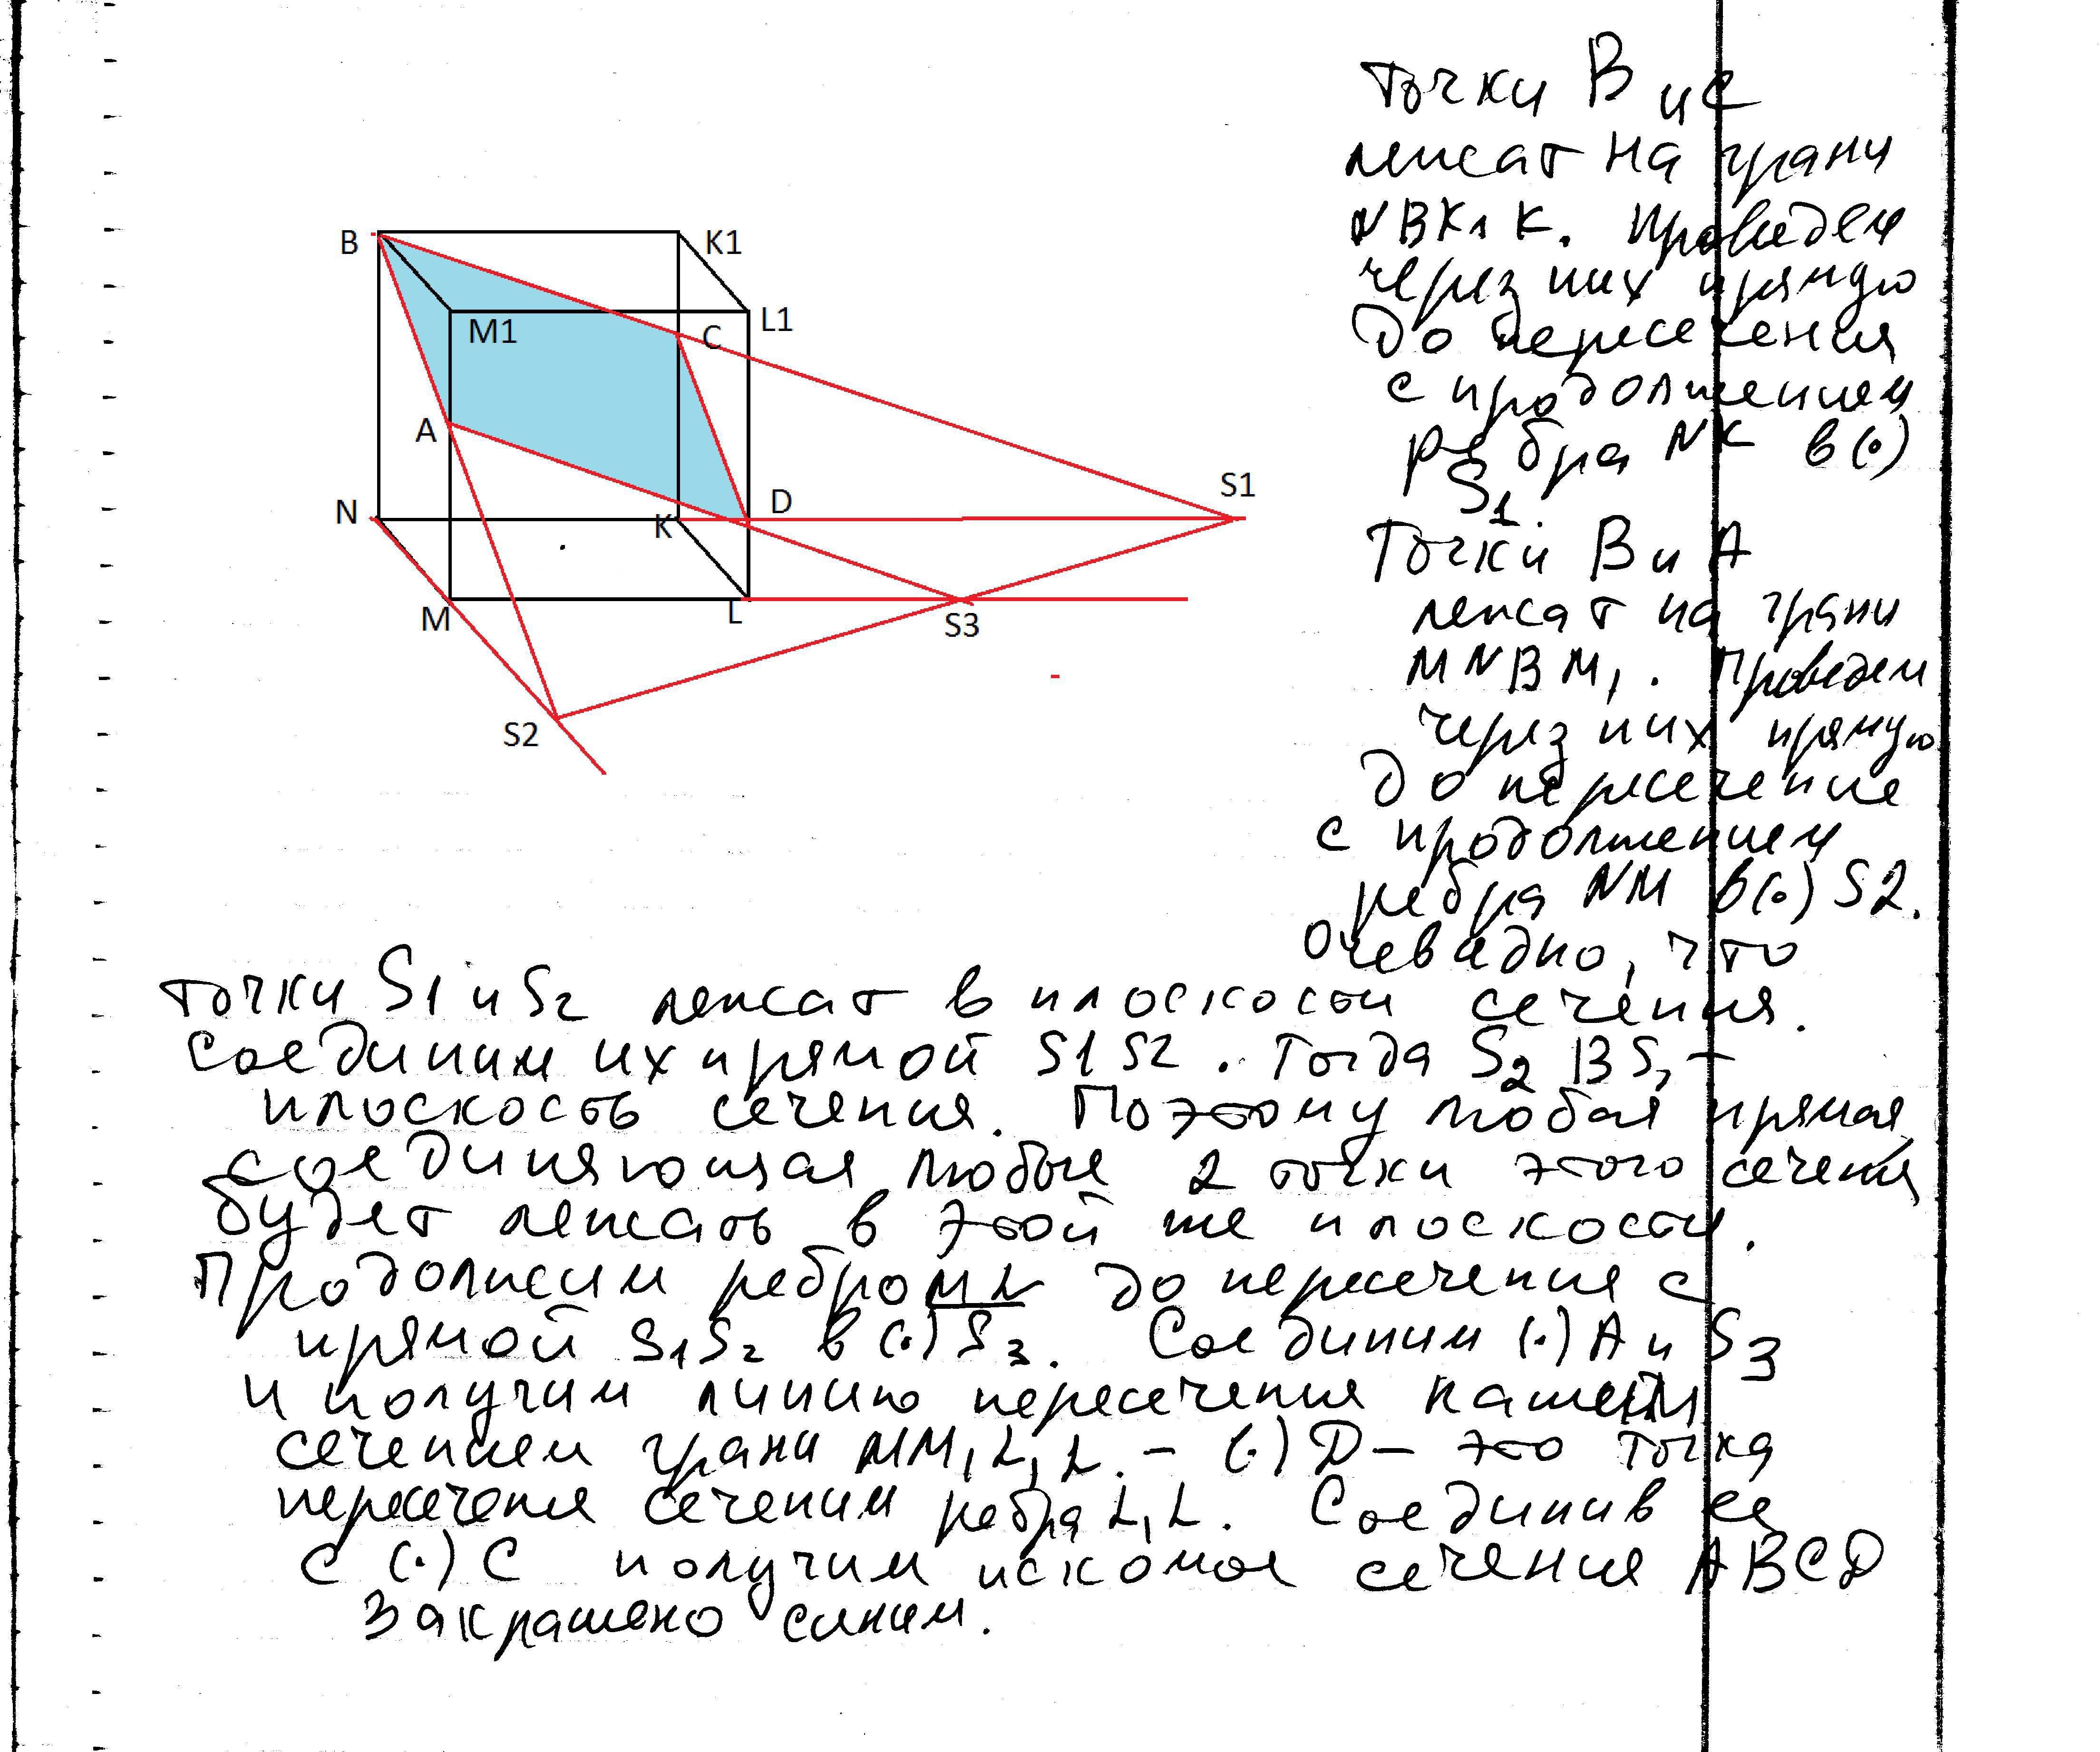 B
K1
M1
L1
C
A
N
K
D
S1
M
L
S3
S2
Точки В и С
лежат на грани
NBK1K. Проведем
через них прямую
до пересечения
с продолжением
ребра NK в (·)
S1.
Точки В и А
лежат на грани
MNBM1. Проведем
через них прямую
до пересечение
с продолжением
ребра NM в (·) S2.
Очевидно, что
точки S1 и S2 лежат в плоскости сечения.
Соединим их прямой S1S2. Тогда S2BS1 –
плоскость сечения. Поэтому любая прямая,
соединяющая любые 2 точки этого сечения,
будет лежать в этой же плоскости.
Продолжим ребро ML до пересечения с
прямой S1S2 в (·) S3. Соединим (·) А и S3
и получим линию пересечения нашем
сечением грани MM1L1L. – (·) D – это точка
пересечения сечением ребра L1L. Соединив ее
с (·) С получим искомое сечение ABCD
закрашено синим.